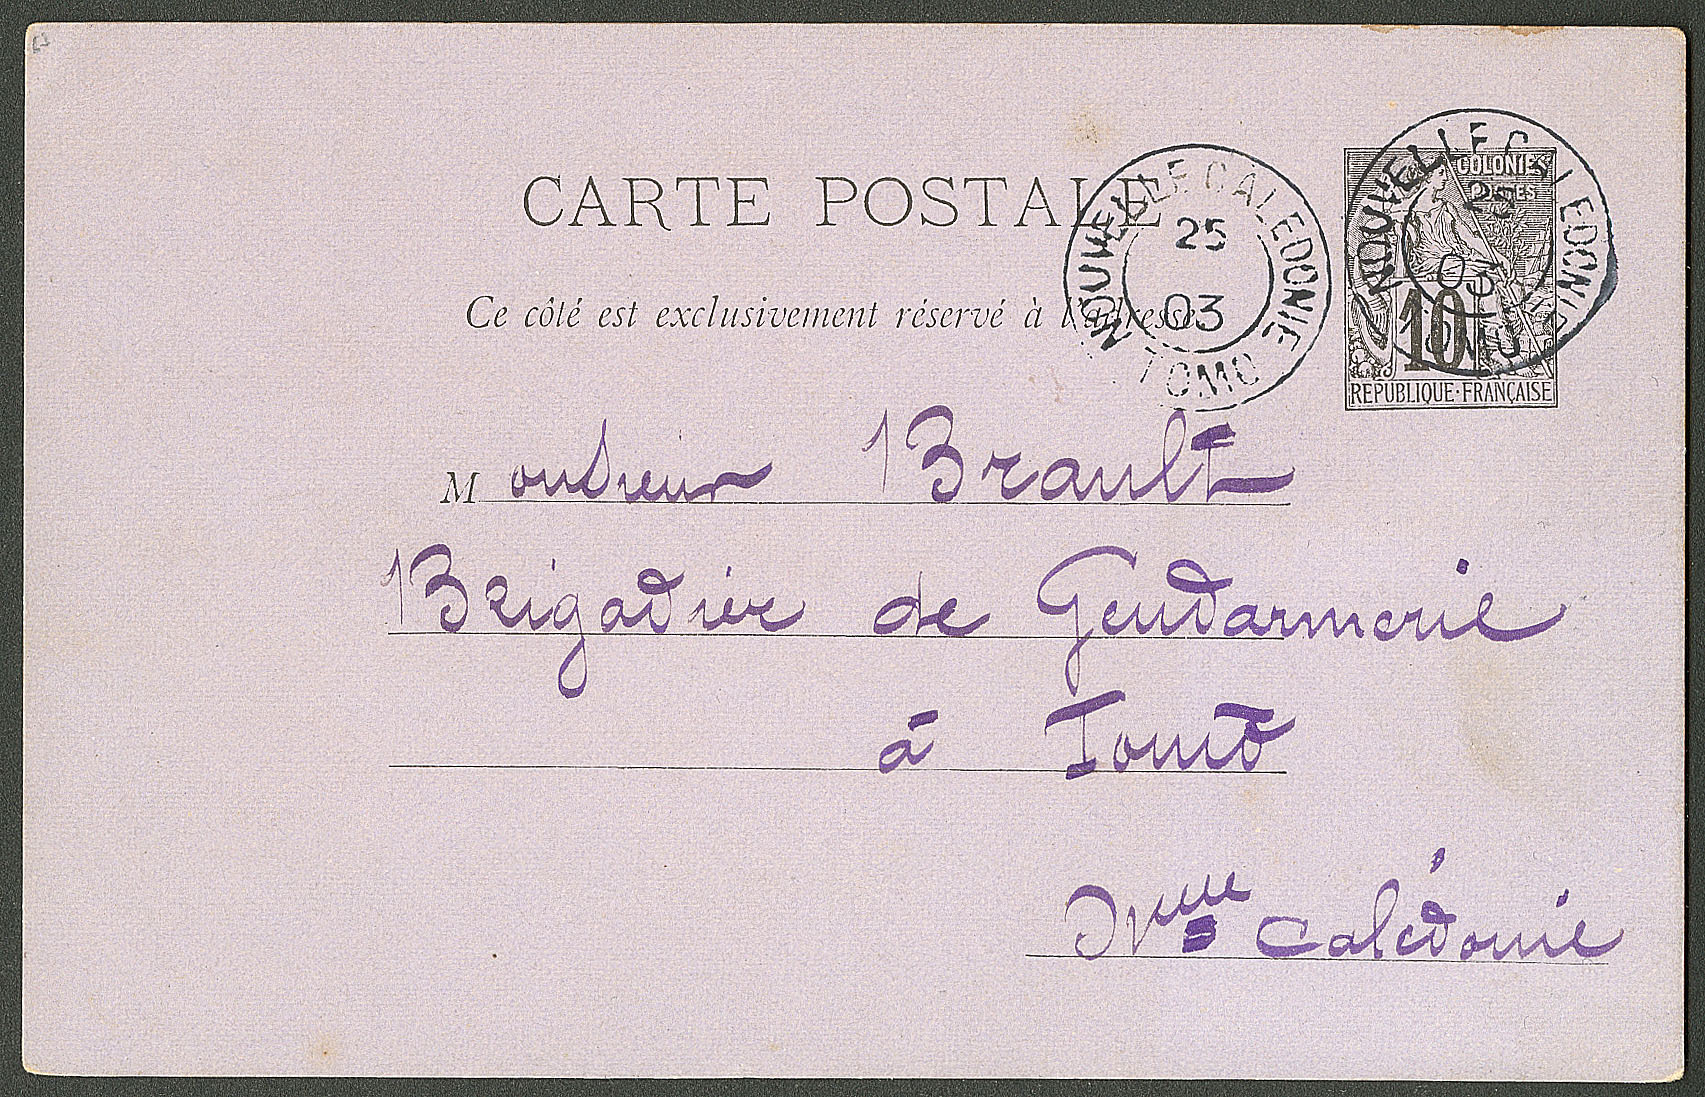 CARTE POSTALE
Ce côté est exclusivement réservé à l'adresse.
NOUVELLE CALEDONIE
25
03
TOMO
NOUVELLE CALEDONIE
COLONIES
10
REPUBLIQUE·FRANÇAISE
Monsieur Brault
Brigadier de Gendarmerie
à Tomo
Nvelle Calédonie